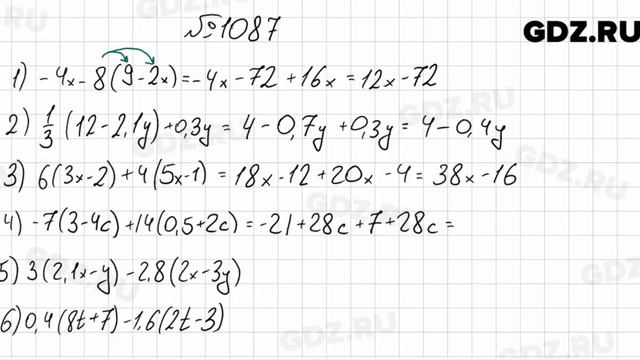 №1087
GDZ.RU
1) -4x-8(9-2x)=-4x-72+16x=12x-72
2) 1/3(12-2,1y)+0,3y=4-0,7y+0,3y=4-0,4y
3) 6(3x-2)+4(5x-1)=18x-12+20x-4=38x-16
4) -7(3-4c)+14(0,5+2c)=-21+28c+7+28c=
5) 3(2,1x-y)-2,8(2x-3y)
6) 0,4(8t+7)-1,6(2t-3)